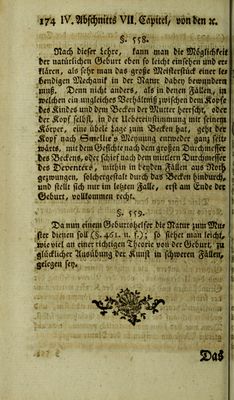 174 IV. Abschnitts VII. Capitel, von den ꝛc.
§. 558.
Nach dieser Lehre, kann man die Möglichkeit
der natürlichen Geburt eben so leicht einsehen und er-
klären, als sehr man das große Meisterstück einer le-
bendigen Mechanik in der Natur dabey bewundern
muß. Denn nicht anders, als in denen Fällen, in
welchen ein ungleiches Verhältniß zwischen dem Kopfe
des Kindes und dem Becken der Mutter herrscht, oder
der Kopf selbst, in der Uebereinstimmung mit seinem
Körper, eine übele Lage zum Becken hat, geht der
Kopf nach Smellie's Meynung entweder ganz seit-
wärts, mit dem Gesichte nach dem großen Durchmesser
des Beckens, oder schief nach dem mittlern Durchmesser
des Deventers, mithin in beyden Fällen aus Noth
gezwungen, solchergestalt durch das Becken hindurch,
und stellt sich nur im letzten Falle, erst am Ende der
Geburt, vollkommen recht.
§. 559.
Da nun einem Geburtshelfer die Natur zum Mu-
ster dienen soll (§. 461. u. f.); so siehet man leicht,
wie viel an einer richtigen Theorie von der Geburt, zu
glücklicher Ausübung der Kunst in schweren Fällen,
gelegen sey.
Das